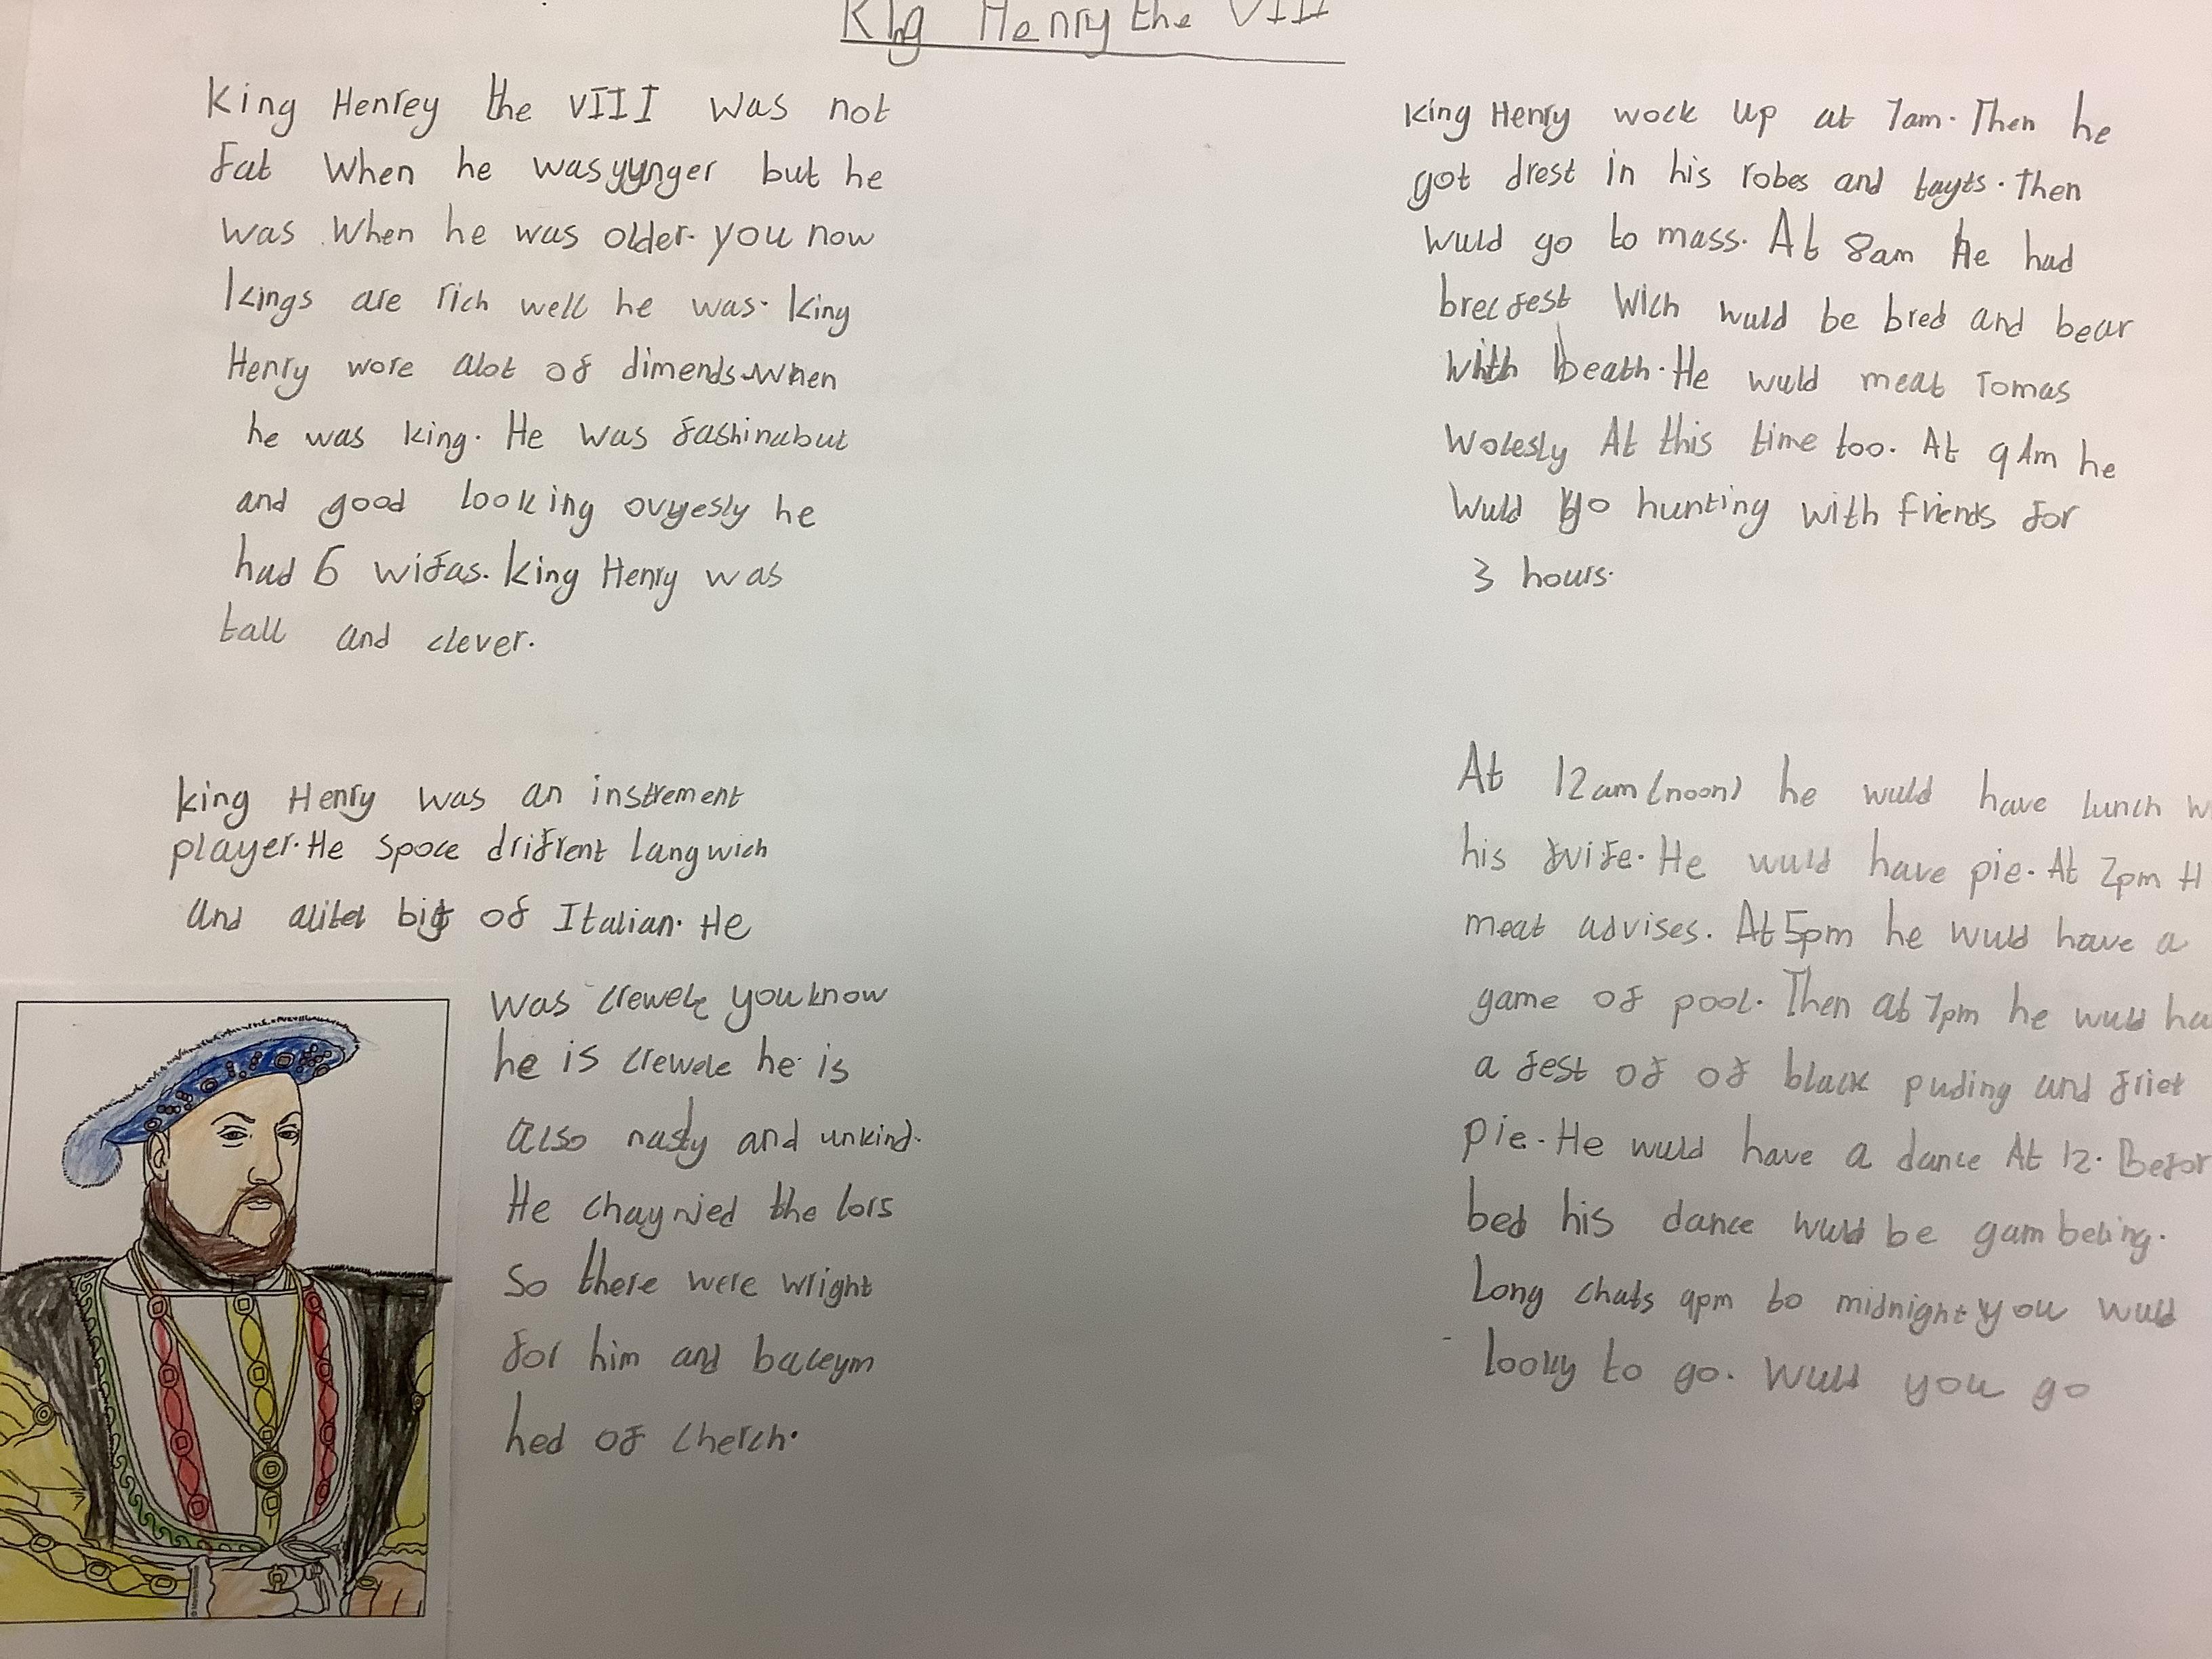 King Henry the VIII
King Henrey the VIII was not
fat when he was yynger but he
was when he was older. you now
kings are rich well he was. king
Henry wore alot of dimends when
he was king. He was fashinabut
and good looking ovyesly he
had 6 wifas. king Henry was
tall and clever.
king Henry was an instrement
player. He spoce drifrent langwich
and alitel bit of Italian. He
was crewele you know
he is crewele he is
also nasty and unkind.
He chaynied the lors
so there were wright
for him and baceym
hed of cherch.
king Henry wock up at 7am. Then he
got drest in his robes and tayts. Then
wuld go to mass. At 8am He had
brecfest wich wuld be bred and bear
with beath. He wuld meat Tomas
Wolesly At this time too. At 9Am he
wuld go hunting with friends for
3 hours.
At 12am (noon) he wuld have lunch w
his wife. He wuld have pie. At 2pm H
meat advises. At 5pm he wuld have a
game of pool. Then at 7pm he wuld ha
a fest of of black puding and friet
pie. He wuld have a dance At 12. Befor
bed his dance wuld be gambeling.
Long chats 9pm to midnight you wuld
looky to go. Wuld you go